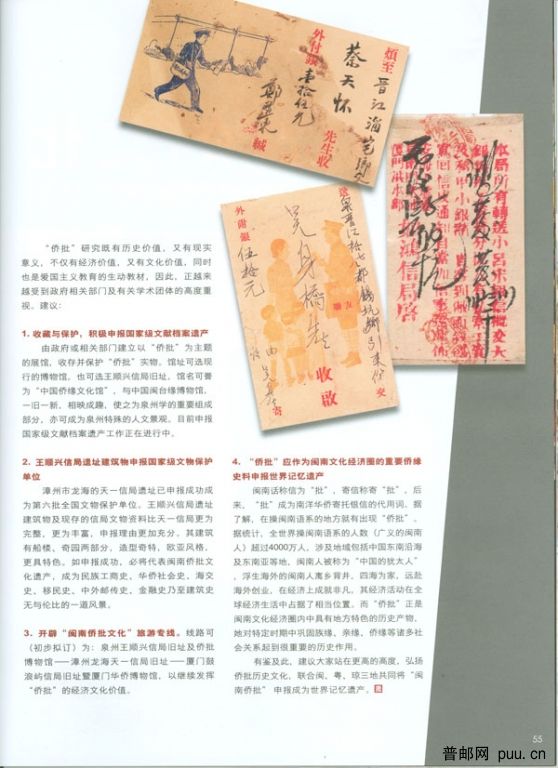 煩至晋江
蔡天怀
先生收
外付銀
壹拾伍元
緘
外附銀
伍拾元
收啟
寄
交
“侨批”研究既有历史价值，又有现实
意义，不仅有经济价值，又有文化价值，同时
也是爱国主义教育的生动教材，因此，正越来
越受到政府相关部门及有关学术团体的高度重
视。建议：
1. 收藏与保护，积极申报国家级文献档案遗产
由政府或相关部门建立以“侨批”为主题
的展馆，收存并保护“侨批”实物。馆址可选现
行的博物馆，也可选王顺兴信局旧址，馆名可誉
为“中国侨缘文化馆”，与中国闽台缘博物馆，
一旧一新，相映成趣，使之为泉州学的重要组成
部分，亦可成为泉州特殊的人文景观。目前申报
国家级文献档案遗产工作正在进行中。
2. 王顺兴信局遗址建筑物申报国家级文物保护
单位
漳州市龙海的天一信局遗址已申报成功成
为第六批全国文物保护单位。王顺兴信局遗址
建筑物及现存的信局文物资料比天一信局更为
完整，更为丰富，申报理由更加充分。其建筑
有船楼、奇园两部分，造型奇特，欧亚风格，
更具特色。如申报成功，必将代表闽南侨批文
化遗产，成为民族工商史、华侨社会史、海交
史、移民史、中外邮传史、金融史乃至建筑史
无与伦比的一道风景。
3. 开辟“闽南侨批文化”旅游专线。线路可
（初步拟订）为：泉州王顺兴信局旧址及侨批
博物馆——漳州龙海天一信局旧址——厦门鼓
浪屿信局旧址暨厦门华侨博物馆，以继续发挥
“侨批”的经济文化价值。
4. “侨批”应作为闽南文化经济圈的重要侨缘
史料申报世界记忆遗产
闽南话称信为“批”，寄信称寄“批”。后
来，“批”成为南洋华侨寄托银信的代用词。据
了解，在操闽南语系的地方就有出现“侨批”。
据统计，全世界操闽南语系的人数（广义的闽南
人）超过4000万人，涉及地域包括中国东南沿海
及东南亚等地，闽南人被称为“中国的犹太人”
，浮生海外的闽南人离乡背井，四海为家，远赴
海外创业，在经济上成就非凡，其经济活动在全
球经济生活中占据了相当位置。而“侨批”正是
闽南文化经济圈内中具有地方特色的历史产物，
她对特定时期中巩固族缘、亲缘、侨缘等诸多社
会关系起到很重要的历史作用。
有鉴及此，建议大家站在更高的高度，弘扬
侨批历史文化，联合闽、粤、琼三地共同将“闽
南侨批”申报成为世界记忆遗产。
55
普邮网 puu.cn